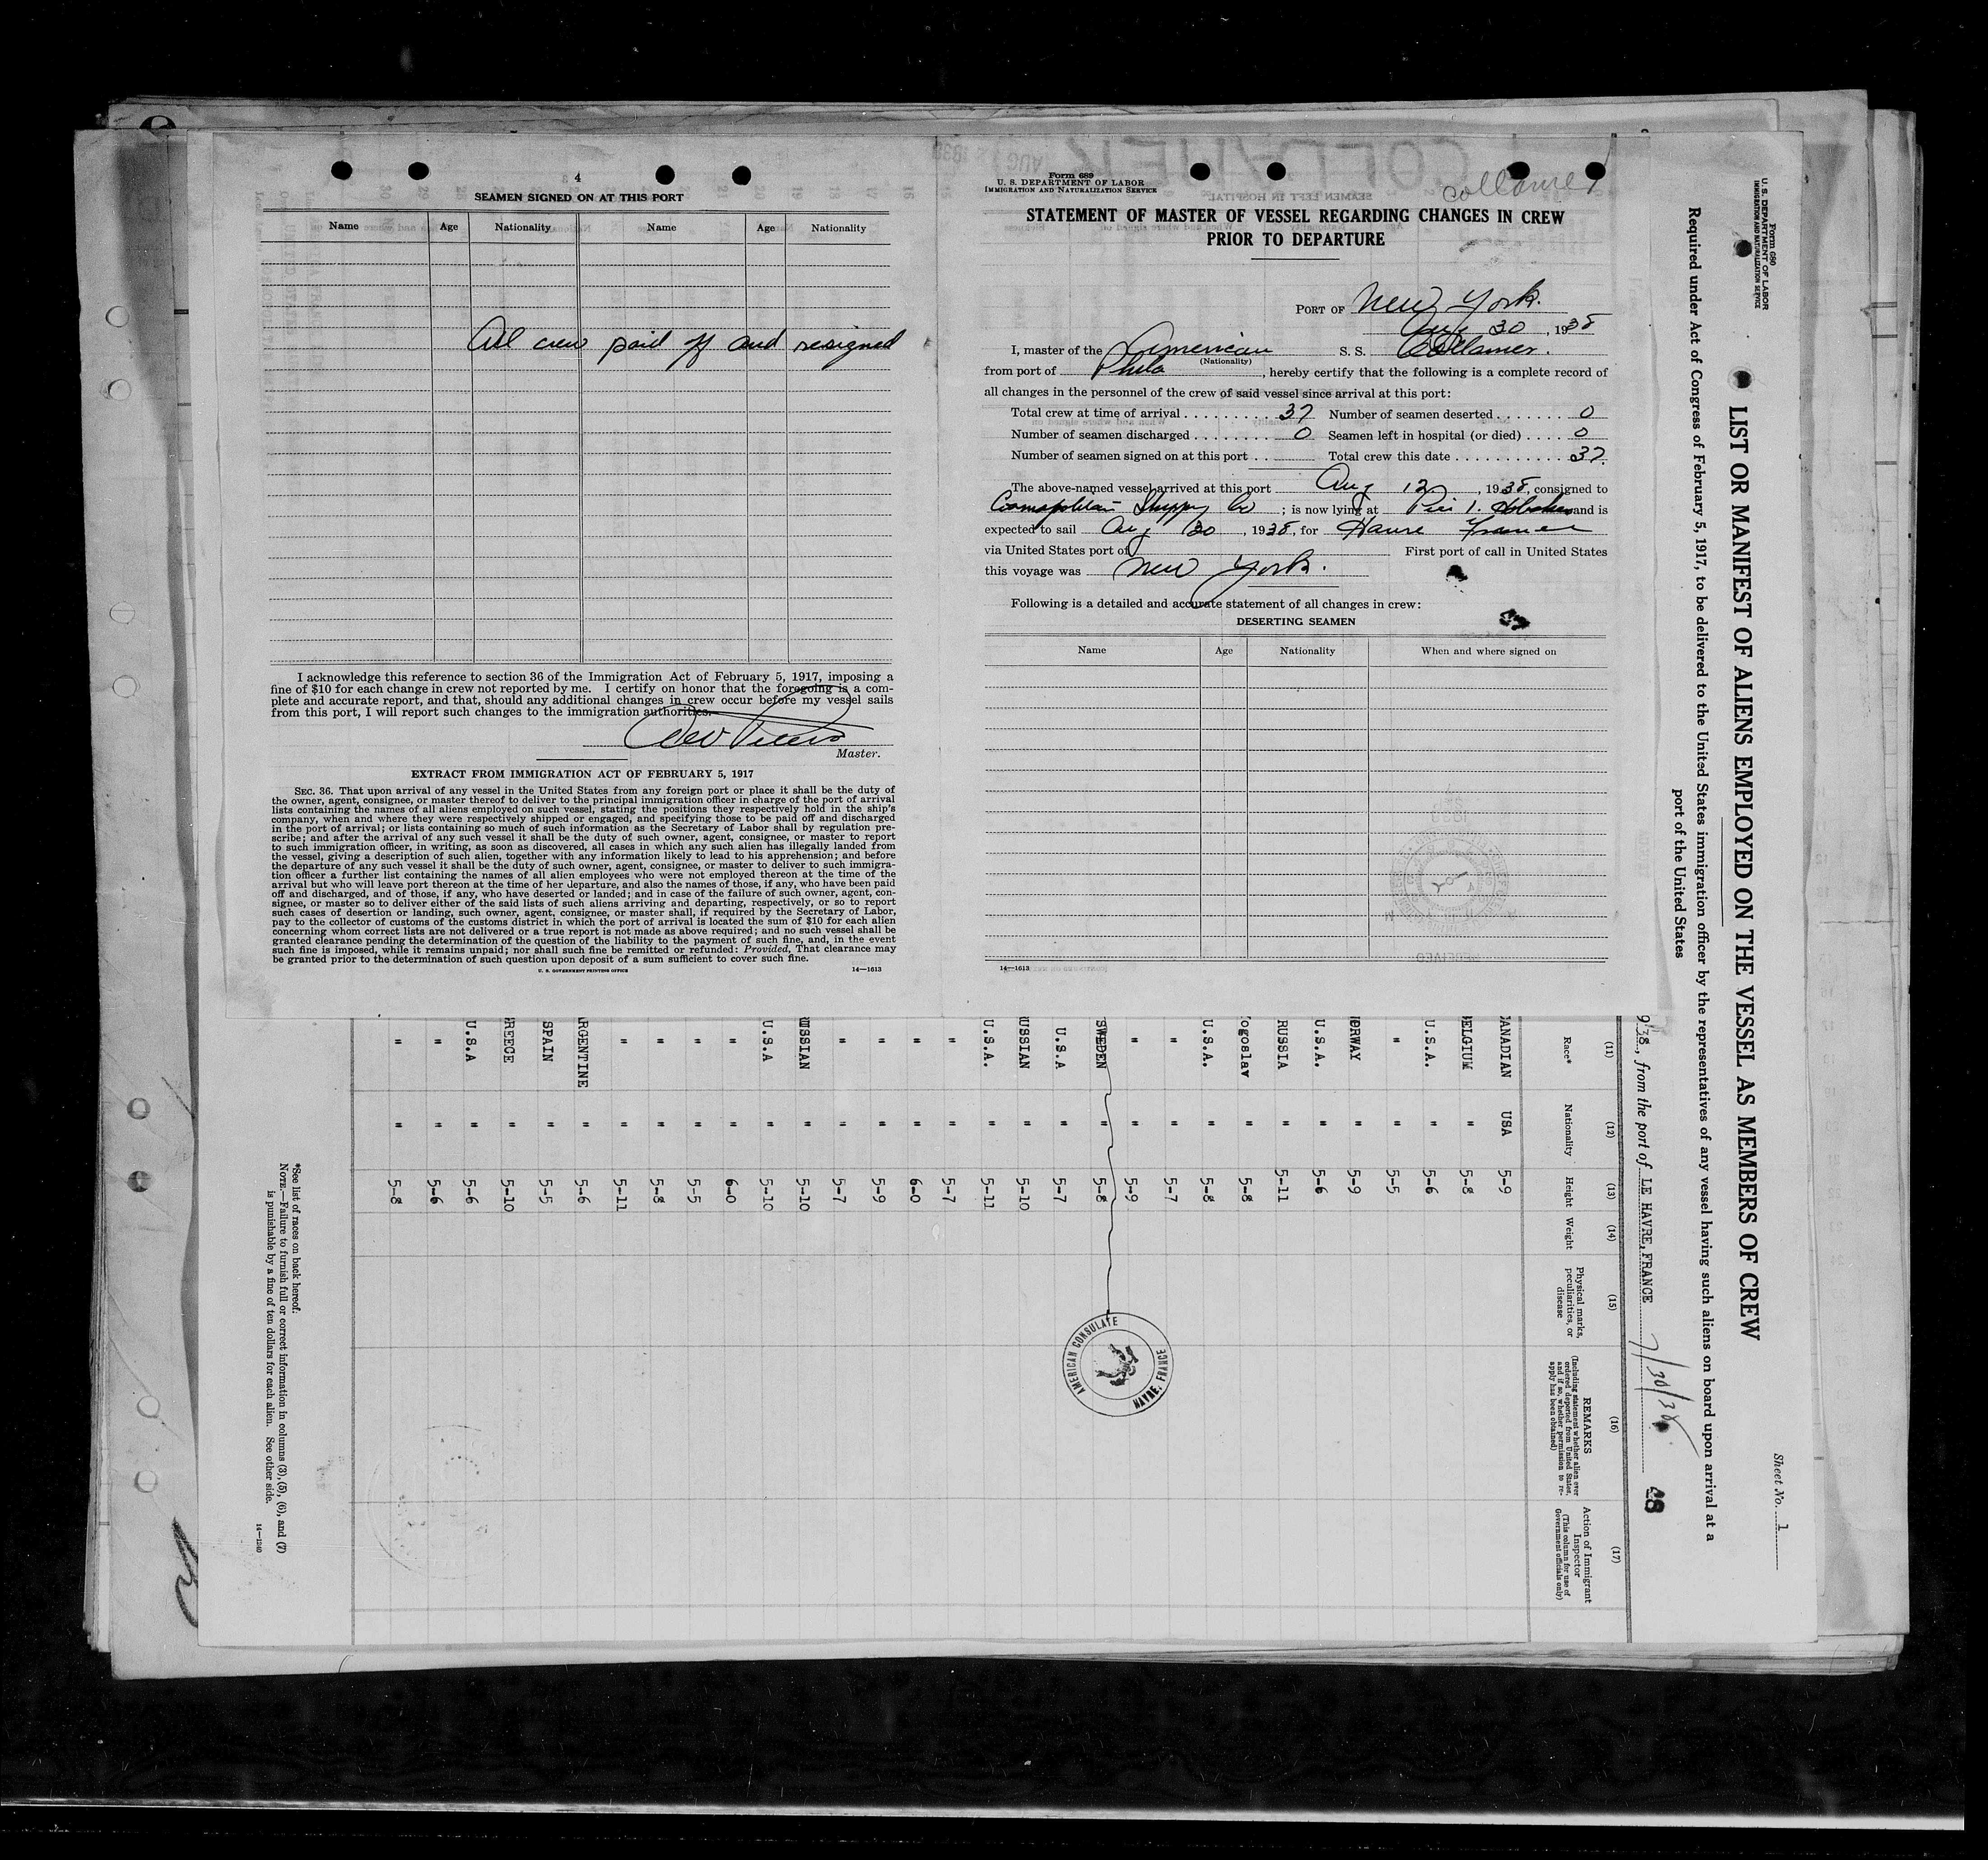 4
SEAMEN SIGNED ON AT THIS PORT
Name Age Nationality Name Age Nationality
All crew paid off and resigned
I acknowledge this reference to section 36 of the Immigration Act of February 5, 1917, imposing a
fine of $10 for each change in crew not reported by me. I certify on honor that the foregoing is a com-
plete and accurate report, and that, should any additional changes in crew occur before my vessel sails
from this port, I will report such changes to the immigration authorities.
Master.
EXTRACT FROM IMMIGRATION ACT OF FEBRUARY 5, 1917
SEC. 36. That upon arrival of any vessel in the United States from any foreign port or place it shall be the duty of
the owner, agent, consignee, or master thereof to deliver to the principal immigration officer in charge of the port of arrival
lists containing the names of all aliens employed on such vessel, stating the positions they respectively hold in the ship's
company, when and where they were respectively shipped or engaged, and specifying those to be paid off and discharged
in the port of arrival; or lists containing so much of such information as the Secretary of Labor shall by regulation pre-
scribe; and after the arrival of any such vessel it shall be the duty of such owner, agent, consignee, or master to report
to such immigration officer, in writing, as soon as discovered, all cases in which any such alien has illegally landed from
the vessel, giving a description of such alien, together with any information likely to lead to his apprehension; and before
the departure of any such vessel it shall be the duty of such owner, agent, consignee, or master to deliver to such immigra-
tion officer a further list containing the names of all alien employees who were not employed thereon at the time of the
arrival but who will leave port thereon at the time of her departure, and also the names of those, if any, who have been paid
off and discharged, and of those, if any, who have deserted or landed; and in case of the failure of such owner, agent, con-
signee, or master so to deliver either of the said lists of such aliens arriving and departing, respectively, or so to report
such cases of desertion or landing, such owner, agent, consignee, or master shall, if required by the Secretary of Labor,
pay to the collector of customs of the customs district in which the port of arrival is located the sum of $10 for each alien
concerning whom correct lists are not delivered or a true report is not made as above required; and no such vessel shall be
granted clearance pending the determination of the question of the liability to the payment of such fine, and, in the event
such fine is imposed, while it remains unpaid; nor shall such fine be remitted or refunded: Provided, That clearance may
be granted prior to the determination of such question upon deposit of a sum sufficient to cover such fine.
U. S. GOVERNMENT PRINTING OFFICE 14—1613
Form 689
U. S. DEPARTMENT OF LABOR
IMMIGRATION AND NATURALIZATION SERVICE
Collamer
STATEMENT OF MASTER OF VESSEL REGARDING CHANGES IN CREW
PRIOR TO DEPARTURE
PORT OF New York.
Aug 30, 1938
I, master of the American S. S. Collamer.
(Nationality)
from port of Phila, hereby certify that the following is a complete record of
all changes in the personnel of the crew of said vessel since arrival at this port:
Total crew at time of arrival . . . . . . . . . 37 Number of seamen deserted . . . . . . . 0
Number of seamen discharged . . . . . . . . 0 Seamen left in hospital (or died) . . . . 0
Number of seamen signed on at this port . . Total crew this date . . . . . . . . . . . 37.
The above-named vessel arrived at this port Aug 12, 1938, consigned to
Cosmopolitan Shipping Co; is now lying at Pier 1. Hoboken and is
expected to sail Aug 30, 1938, for Havre France
via United States port of First port of call in United States
this voyage was New York.
Following is a detailed and accurate statement of all changes in crew:
DESERTING SEAMEN
Name Age Nationality When and where signed on
14—1613
Form 680
U. S. DEPARTMENT OF LABOR
IMMIGRATION AND NATURALIZATION SERVICE
Sheet No. 1
LIST OR MANIFEST OF ALIENS EMPLOYED ON THE VESSEL AS MEMBERS OF CREW
Required under Act of Congress of February 5, 1917, to be delivered to the United States immigration officer by the representatives of any vessel having such aliens on board upon arrival at a
port of the United States
938, from the port of LE HAVRE, FRANCE 7/30/38 48
(11) (12) (13) (14) (15) (16) (17)
Race* Nationality Height Weight Physical marks, peculiarities, or disease REMARKS (Including statement whether alien ever ordered deported from United States, and if so, whether permission to re-apply has been obtained) Action of Immigrant Inspector (This column for use of Government officials only)
ANADIAN USA 5-9
ELGIUM " 5-8
U.S.A. " 5-6
" " 5-5
ORWAY " 5-9
U.S.A. " 5-6
RUSSIA " 5-11
ogoslav " 5-8
U.S.A. " 5-8
" " 5-7
" " 5-9
SWEDEN " 5-8
U.S.A " 5-7
USSIAN " 5-10
U.S.A. " 5-11
" " 5-7
" " 6-0
" " 5-9
" " 5-7
USSIAN " 5-10
U.S.A " 5-10
" " 6-0
" " 5-5
" " 5-8
" " 5-11
RGENTINE " 5-6
SPAIN " 5-5
REECE " 5-10
U.S.A " 5-6
" " 5-6
" " 5-8
AMERICAN CONSULATE
HAVRE, FRANCE
*See list of races on back hereof.
NOTE.—Failure to furnish full or correct information in columns (3), (5), (6), and (7)
is punishable by a fine of ten dollars for each alien. See other side.
14—1240